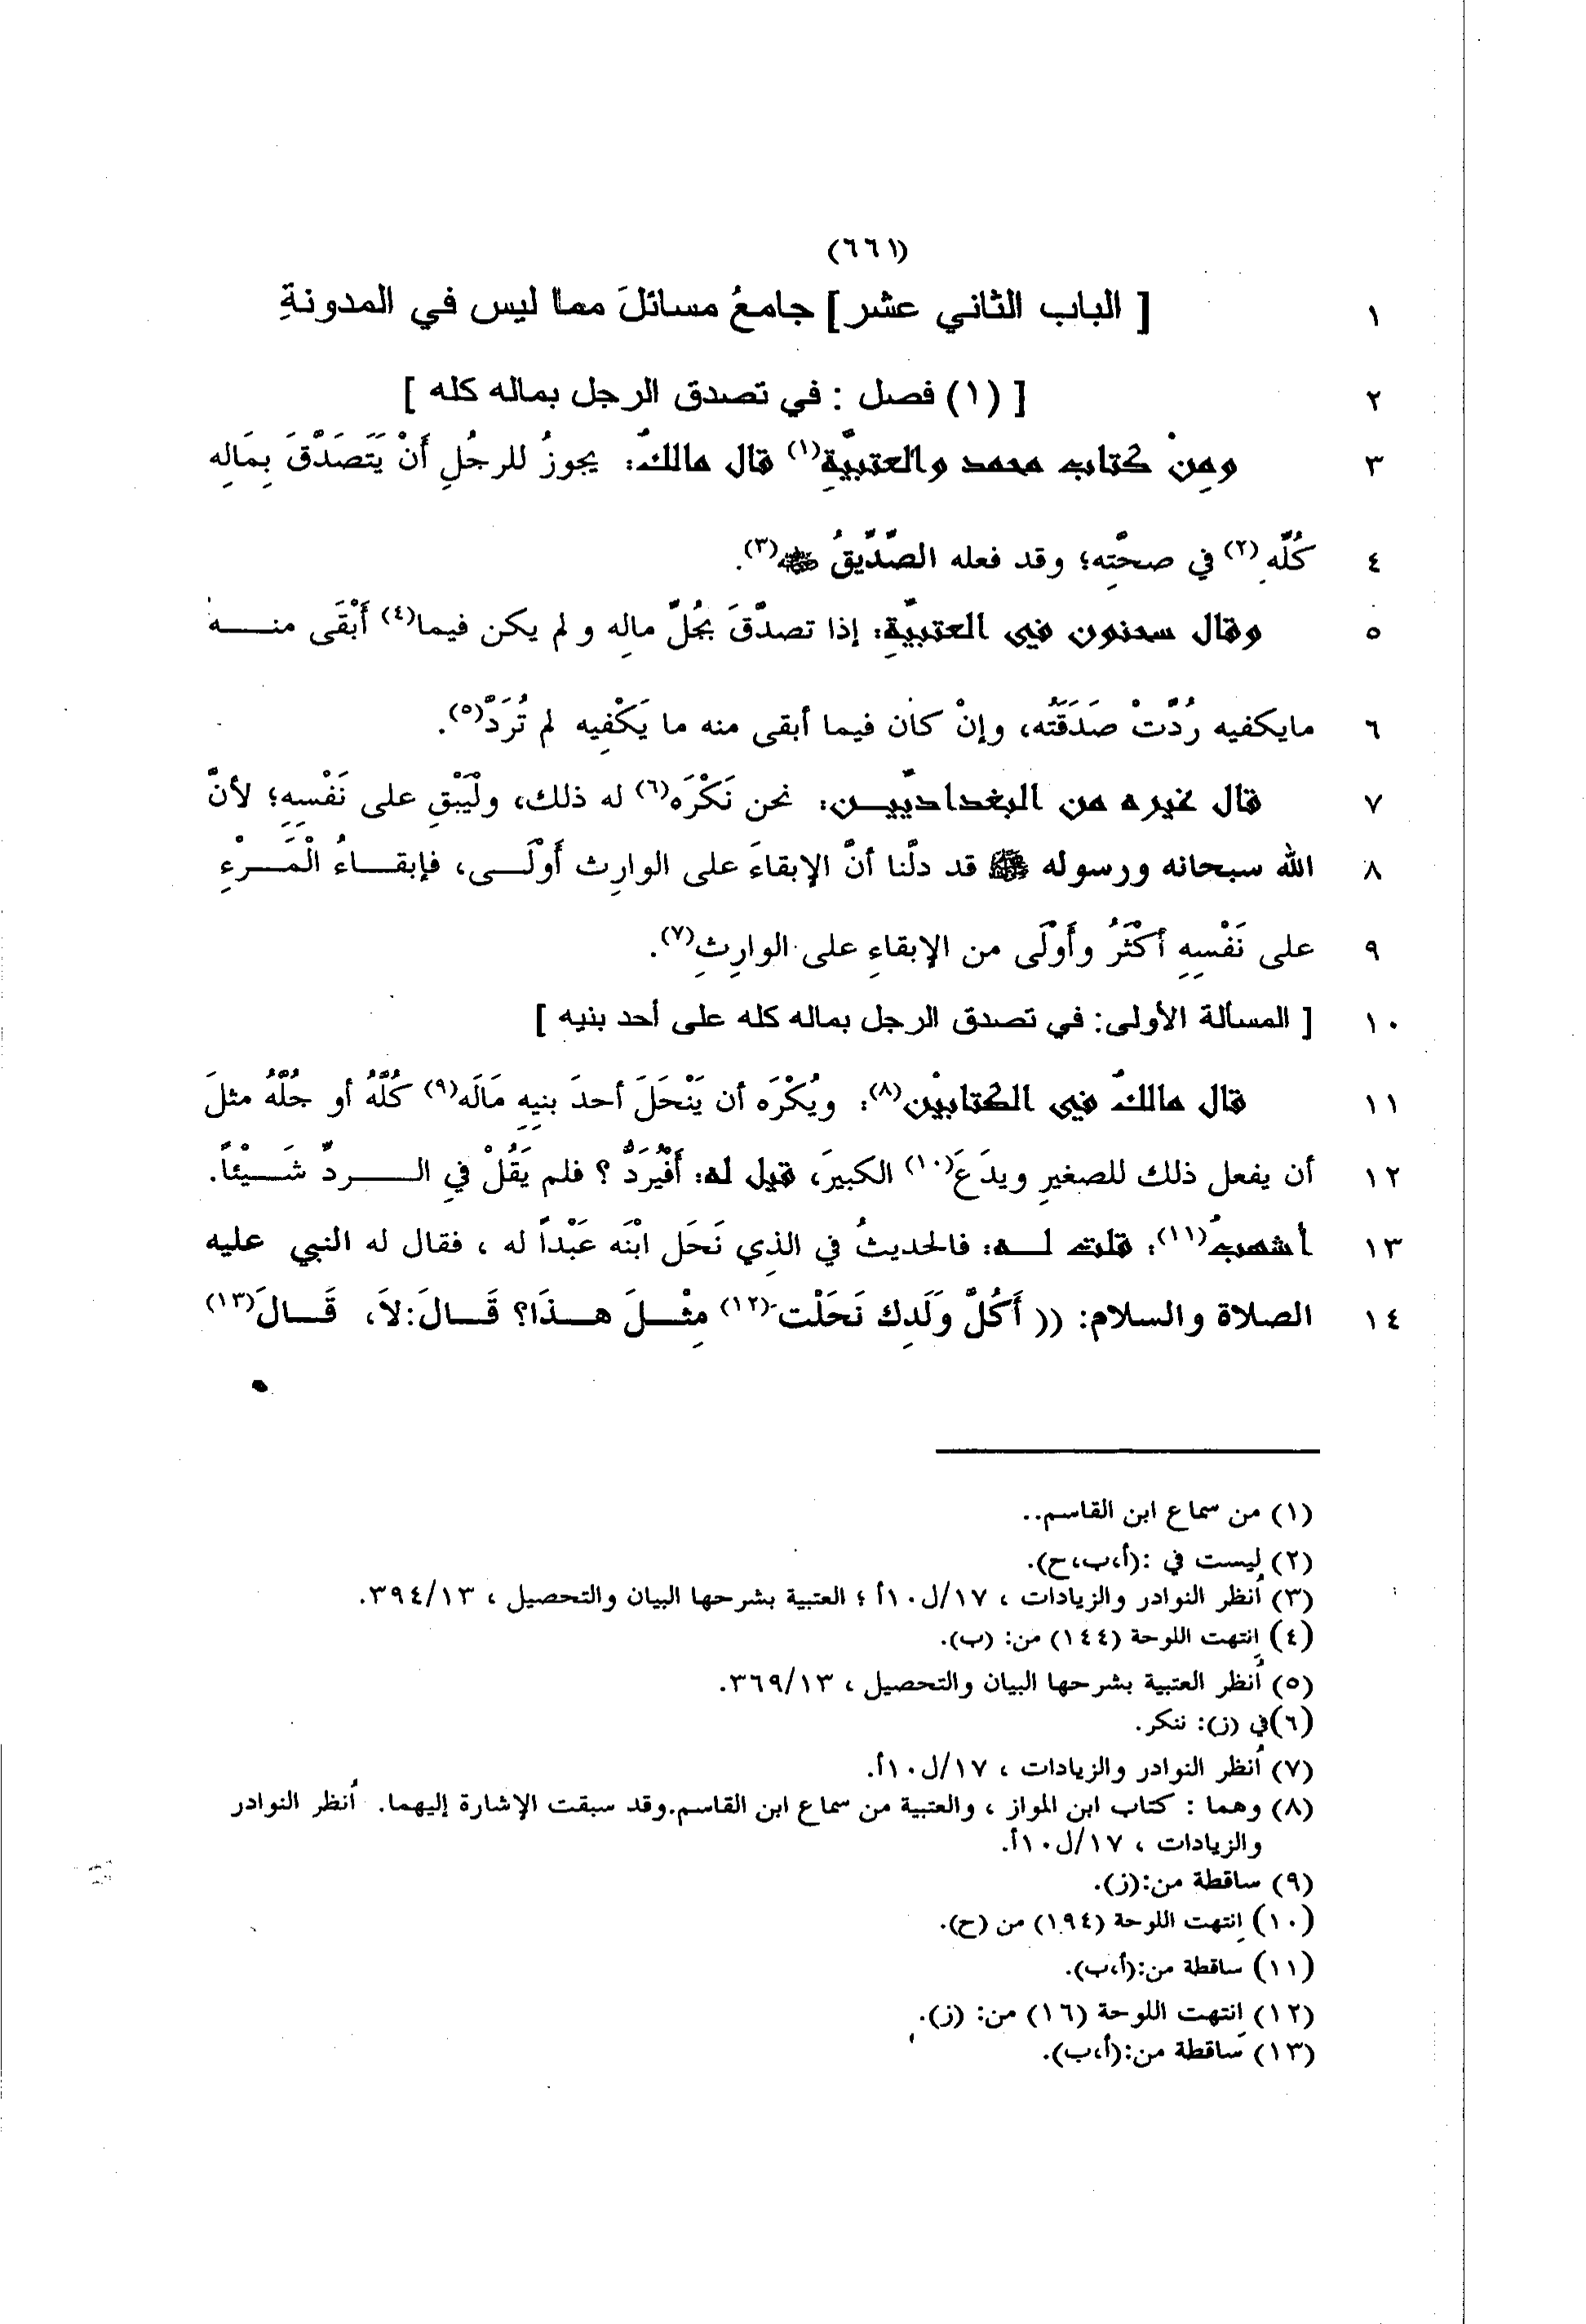 (٦٦١)
١ [ الباب الثاني عشر ] جامعُ مسائلَ مما ليس في المدونةِ
٢ [ (١) فصل : في تصدق الرجل بماله كله ]
٣ ومِنْ كتاب محمد والعتبيَّةِ(١) قال مالكٌ: يجوزُ للرجُلِ أَنْ يَتَصَدَّقَ بِمَالِه
٤ كُلِّهِ(٢) في صحتِّه؛ وقد فعله الصِّدِّيقُ ﷺ(٣).
٥ وقال سحنون في العتبيَّةِ: إذا تصدَّقَ بجُلِّ مالِه و لم يكن فيما(٤) أَبْقَى منـــه
٦ مايكفيه رُدَّتْ صَدَقَتُه، وإنْ كان فيما أبقى منه ما يَكْفِيه لم تُرَدّْ(٥).
٧ قال غيره من البغداديّيــن: نحن نَكْرَه(٦) له ذلك، ولْيَبْقِ على نَفْسِهِ؛ لأنَّ
٨ الله سبحانه ورسوله ﷺ قد دلَّنا أنَّ الإبقاءَ على الوارِث أَوْلَــى، فإبقــاءُ الْمَــرْءِ
٩ على نَفْسِهِ أكْثَرُ وأَوْلَى من الإبقاءِ على الوارِثِ(٧).
١٠ [ المسألة الأولى: في تصدق الرجل بماله كله على أحد بنيه ]
١١ قال مالكٌ في الكتابيْن(٨): ويُكْرَه أن يَنْحَلَ أحدَ بنيِهِ مَالَه(٩) كُلَّهُ أو جُلَّهُ مثلَ
١٢ أن يفعل ذلك للصغيرِ ويدَعَ(١٠) الكبيرَ، قيل له: أَفَيُرَدُّ ؟ فلم يَقُلْ في الـــــردِّ شَــيْئاً.
١٣ أشهبُ(١١): قلت لــه: فالحديثُ في الذِي نَحَل ابْنَه عَبْداً له ، فقال له النبي عليه
١٤ الصلاة والسلام: (( أَكُلَّ وَلَدِك نَحَلْت(١٢) مِثْــلَ هــذَا؟ قَــالَ:لاَ، قَــالَ(١٣)
(١) من سماع ابن القاسم..
(٢) ليست في :(أ،ب،ح).
(٣) أُنظر النوادر والزيادات ، ١٧/ل١٠أ ؛ العتبية بشرحها البيان والتحصيل ، ٣٩٤/١٣.
(٤) إنتهت اللوحة (١٤٤) من: (ب).
(٥) أُنظر العتبية بشرحها البيان والتحصيل ، ٣٦٩/١٣.
(٦)في (ز): ننكر.
(٧) أُنظر النوادر والزيادات ، ١٧/ل١٠أ.
(٨) وهما : كتاب ابن المواز ، والعتبية من سماع ابن القاسم.وقد سبقت الإشارة إليهما. أُنظر النوادر
والزيادات ، ١٧/ل١٠أ.
(٩) ساقطة من:(ز).
(١٠) إنتهت اللوحة (١٩٤) من (ح).
(١١) ساقطة من:(أ،ب).
(١٢) إنتهت اللوحة (١٦) من: (ز).
(١٣) ساقطة من:(أ،ب).